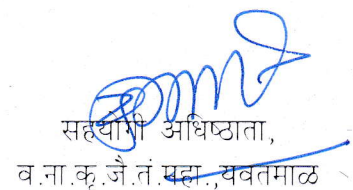 सहयोगी अधिष्ठाता,
व.ना.कृ.जै.तं.महा.,यवतमाळ